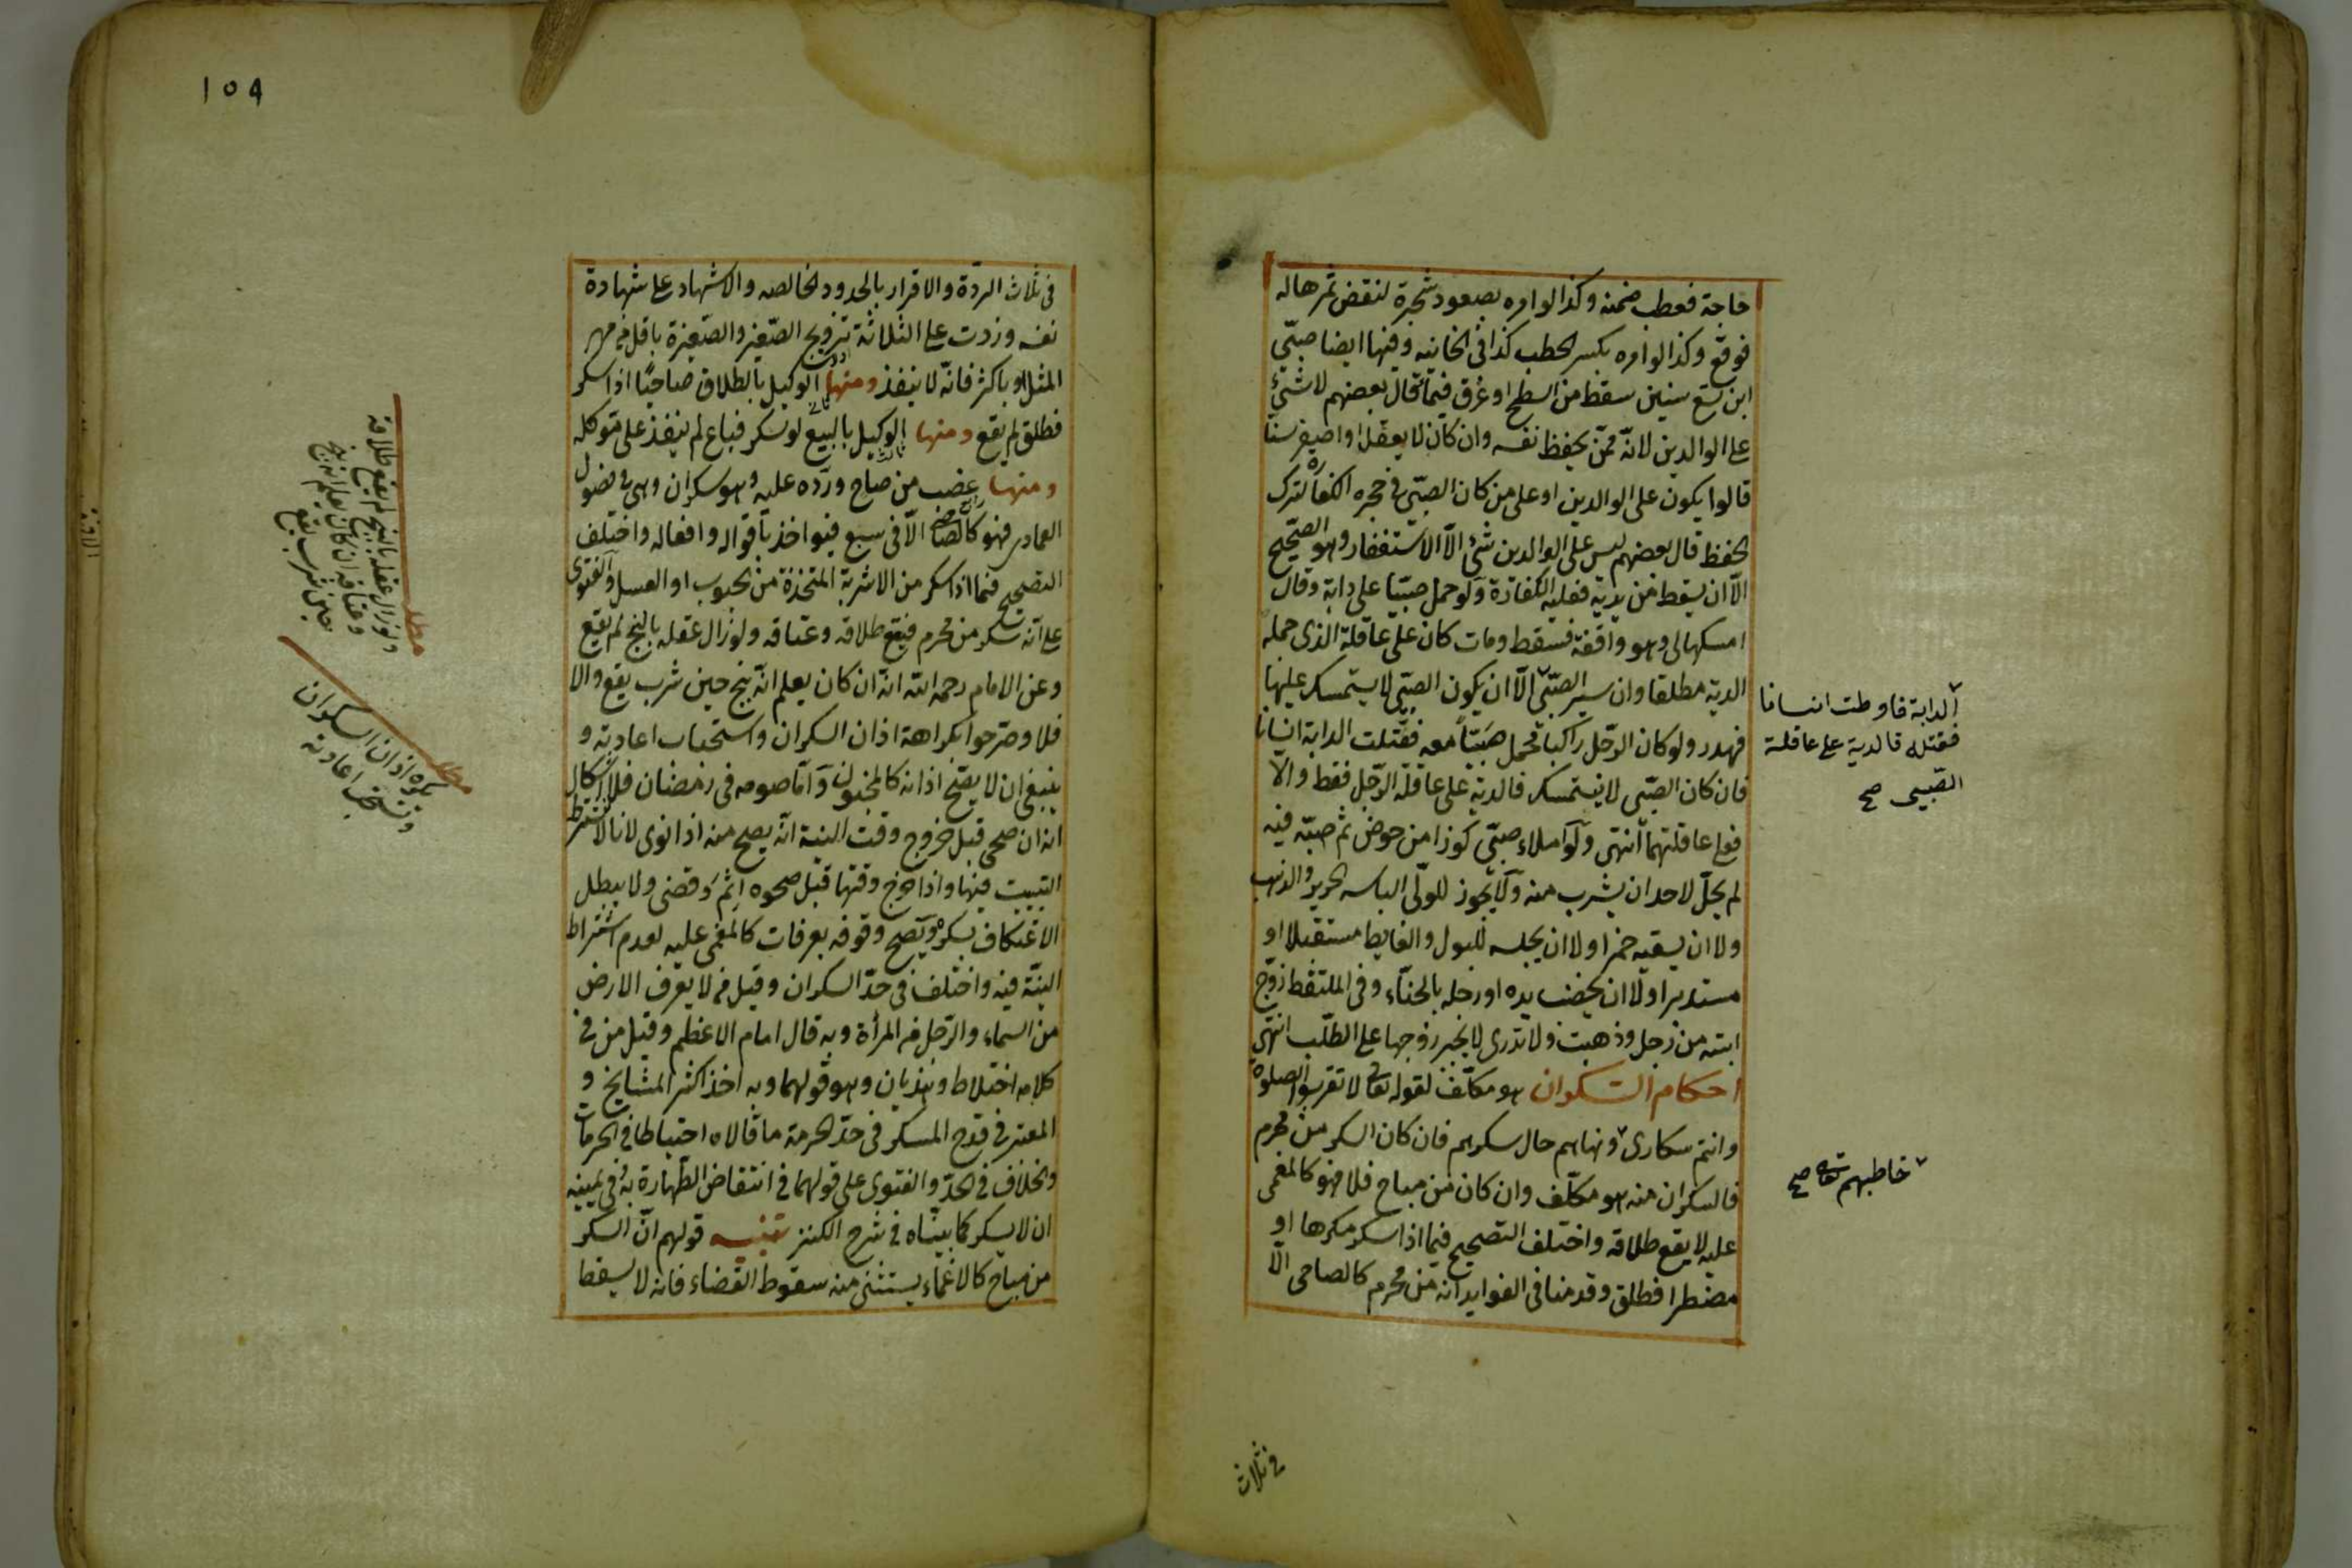 حاجة فعطب ضمنه وكذا لو امره بصعود شجرة لنقض ثمرها له
فوقع وكذا لو امره بكسر الحطب كذا فى الخانيه وفيها ايضا صبّى
ابن تسع سنين سقط من السطح او غرق فيما قال بعضهم لا شئ
على الوالدين لانّه ممّن يحفظ نفسه وان كان لا يعقل او اصغر سنا
قالوا يكون على الوالدين او على من كان الصبّى فى حجره الكفارة لترك
الحفظ قال بعضهم ليس على الوالدين شئ الّا الاستغفار وهو الصّحيح
الّا ان يسقط من يديه فعليه الكفارة ولو حمل صبّيا على دابة وقال
امسكها لى وهو واقفة فسقط ومات كان على عاقلة الذى حمله
الدية مطلقا وان سير الصبّى الّا ان يكون الصبّى لا يستمسك عليها
فهدر ولو كان الرّجل راكبا فحمل صبّياً معه فقتلت الدابة انسانا
فان كان الصبّى لا يستمسك فالدية على عاقلة الرّجل فقط والّا
فعلى عاقلتهما انتهى ولو املاء صبّى كوزا من حوض ثم صبّه فيه
لم يحلّ لاحد ان يشرب منه ولا يجوز للولّى الباسه الحرير والذهب
ولا ان يسقيه خمرا ولا ان يجلسه للبول والغايط مستقبلا او
مستدبرا ولا ان يخضب يده او رجله بالحنّاء وفى الملتقط زوّج
ابنته من رجل وذهبت ولا تدرى لا يجبر زوجها على الطلب انتهى
احكام السّكران هو مكلّف لقوله تعالى لا تقربوا الصلوة
وانتم سكارى ونهاهم حال سكرهم فان كان السكر من محرم
فالسكران منه هو مكلّف وان كان من مباح فلا فهو كالمغمى
عليه لا يقع طلاقه واختلف التصحيح فيما اذا سكر مكرها او
مضطرا فطلق وقدمنا فى الفوايد انه من محرم كالصاحى الّا
الدابة فاوطت انسانا
فقتله فالدية على عاقلة
الصّبى صح
خاطبهم تعالى صح
فى ثلاث
١٥٩
فى ثلاث الردّة والاقرار بالحدود الخالصه والاشهاد على شهادة
نفسه وزدت على الثلاثة تزويج الصّغير والصّغيرة باقل من مهر
المثل او باكثر فانّه لا ينفذ ومنها الوكيل بالطلاق صاحيًا اذا سكر
فطلق لم يقع ومنها الوكيل بالبيع لو سكر فباع لم ينفذ على موكله
ومنها غضب من صاح وردّه عليه وهو سكران وهى فى فصول
العمادى فهو كالصاحى الّا فى سبع فيواخذ باقواله وافعاله واختلف
التصحيح فيما اذا سكر من الاشربة المتخذة من الحبوب او العسل والفتوى
على انّه سكر من محرم فيقع طلاقه وعتاقه ولو زال عقله بالبنج لم يقع
وعن الامام رحمه الله انه ان كان يعلم انّه بنج حين شرب يقع والا
فلا وصرحوا بكراهة اذان السكران واستحباب اعادته و
ينبغى ان لا يصّح اذانه كالمجنون وامّا صومه فى رمضان فلا اشكال
انه ان صحى قبل خروج وقت النية انّه يصح منه اذا نوى لانا لا نشترط
التبييت فيها واذا خرج وقتها قبل صحوه اثم وقضى ولا يبطل
الاعتكاف بسكره ويصح وقوفه بعرفات كالمغمى عليه لعدم اشتراط
النيّة فيه واختلف فى حدّ السكران وقيل من لا يعرف الارض
من السماء والرّجل من المرأة وبه قال امام الاعظم وقيل من فى
كلامه اختلاط وهذيان وهو قولهما وبه اخذ اكثر المشايخ و
المعتبر فى قدح المسكر فى حدّ الحرمة ما قالاه احتياطا فى الحرمات
والخلاف فى الحدّ والفتوى على قولهما فى انتقاض الطّهارة به وفى يمينه
ان لا يسكر كما بينّاه فى شرح الكنز تنبيه قولهم انّ السكر
من مباح كالاغماء يستثنى منه سقوط القضاء فانه لا يسقط
مطلب
ولو زال عقله بالبنج لم يقع طلاقه
وعتاقه ان كان يعلم انه بنج
حين شرب يقع
مطلب
يكره اذان السكران
ويستحب اعادته